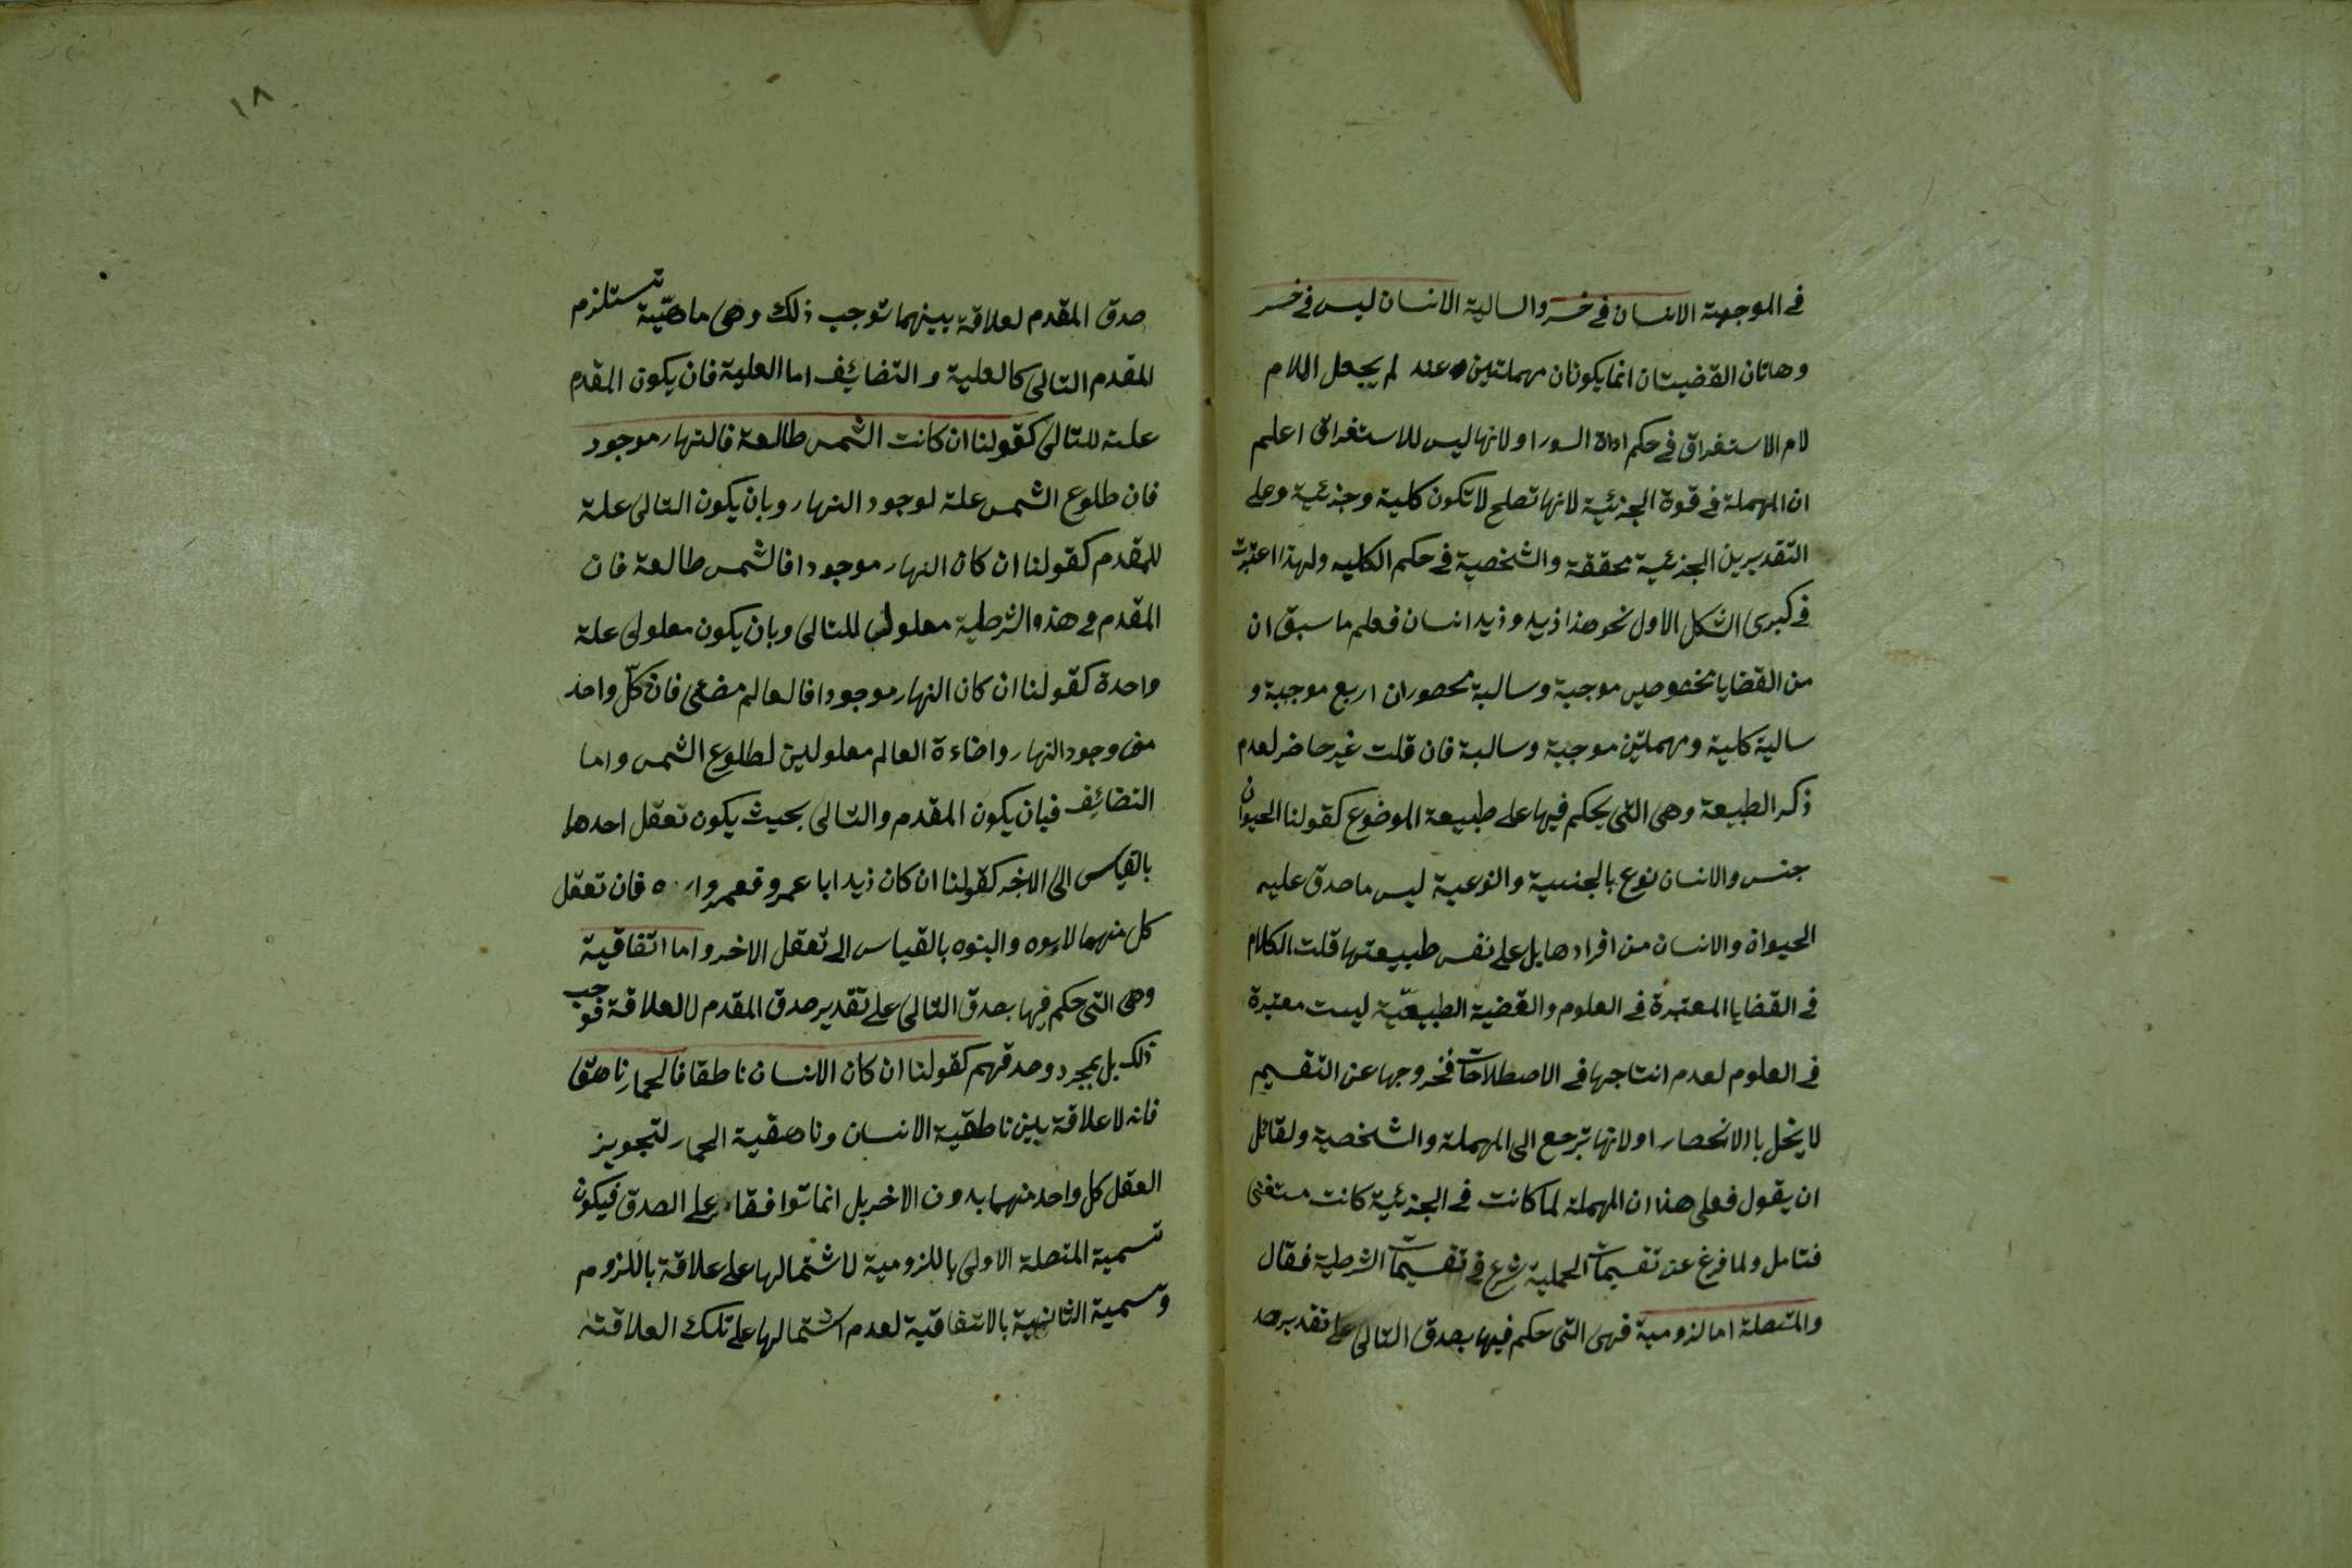 في الموجهة الانسان في خسر والسالية الانسان ليس في خسر
وهاتان القضيتان انما يكونان مهملتين عند لم يجعل اللام
لام الاستغراق في حكم اداة السور او لانها ليس للاستغراق اعلم
ان المهملة في قوة الجزئية لانها تصلح لا تكون كلية وجزئية وعلى
التقديرين الجزئية محققة والشخصية في حكم الكليه ولهذا اعتبرت
في كبرى الشكل الاول نحو هذا زيد وزيد انسان فعلم ما سبق ان
من القضايا مخصوصين موجبة وسالبة محصوران اربع موجبة و
سالية كلية ومهملتين موجبة وسالبة فان قلت غير حاضر لعدم
ذكر الطبيعة وهى التى يحكم فيها على طبيعة الموضوع كقولنا الحيوان
جنس والانسان نوع بالجنسية والنوعية ليس ما صدق عليه
الحيواة والانسان من افرادها بل على نفس طبيعتها قلت الكلام
في القضايا المعتبرة في العلوم والقضية الطبيعيّة ليست معتبرة
في العلوم لعدم انتاجها في الاصطلاحات فخروجها عن التقسيم
لا يخل باالانحصار او لانها ترجع الى المهملة والشخصية ولقائل
ان يقول فعلى هذا ان المهملة لما كانت في الجزئية كانت مستغنى
فتامل ولما فرغ عن تقسيمات الحملية شرع في تقسيمات الشرطية فقال
والمتصلة اما لزومية فهى التى حكم فيها بصدق التالى على تقدير صد
١٨
صدق المقدم لعلاقة بينهما توجب ذلك وهى ماهيّة تستلزم
المقدم التالى كالعلية والتضائف اما العلية فان يكون المقدم
علة للتالى كقولنا ان كانت الشمس طالعة فالنهار موجود
فان طلوع الشمس علة لوجود النهار وبان يكون التالى علة
للمقدم كقولنا ان كان النهار موجودا فالشمس طالعة فان
المقدم في هذه الشرطية معلول للتالى وبان يكون معلولى علة
واحدة كقولنا ان كان النهار موجودا فالعالم مضئى فان كلّ واحد
من وجود النهار واضاءة العالم معلولين لطلوع الشمس واما
التضائف فبان يكون المقدم والتالى بحيث يكون تعقل احدهما
بالقياس الى الاخر كقولنا ان كان زيد ابا عمرو فعمرو ابنه فان تعقل
كل منهما الابوه والبنوه بالقياس الى تعقل الاخر واما اتفاقية
وهى التى حكم فيها بصدق التالى على تقدير صدق المقدم لا لعلاقة فوجب
ذلك بل بمجرد وصدقهم كقولنا ان كان الانسان ناطقا فالحمار ناهقا
فانه لا علاقة بين ناطقية الانسان وناهقية الحمار لتجويز
العقل كل واحد منهما بدون الاخر بل انما توافقا على الصدق فيكون
تسمية المتصلة الاولى باللزومية لاشتمالها على علاقة باللزوم
وتسمية الثانية بالاتفاقية لعدم اشتمالها على تلك العلاقة